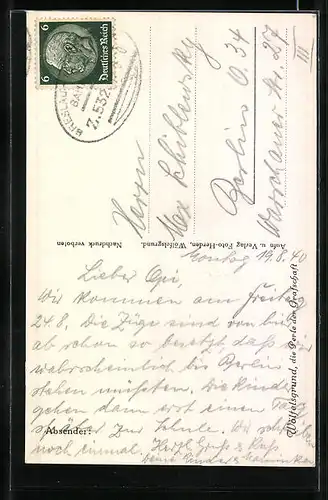 6 Deutsches Reich 6
BRESLAU
BAH
Z. 532
Herrn
Max Schiblewsky
Berlin O. 34
Warschauer Str. 27
III
Nachdruck verboten
Aufn. u. Verlag Foto-Herden, Wölfelsgrund.
Wölfelsgrund, die Perle der Grafschaft
Montag 19.8.40
Lieber Opi,
Wir kommen am Freitag
24.8. Die Züge sind von hier
ab schon so besetzt, daß wir
wahrscheinlich bis Berlin
stehen müßten. Die Kinder
gehen dann erst einen Tag
später zur Schule. Wir schreiben
noch einmal. Herzl. Gruß & Kuß
Deine Kinder &
Absender: